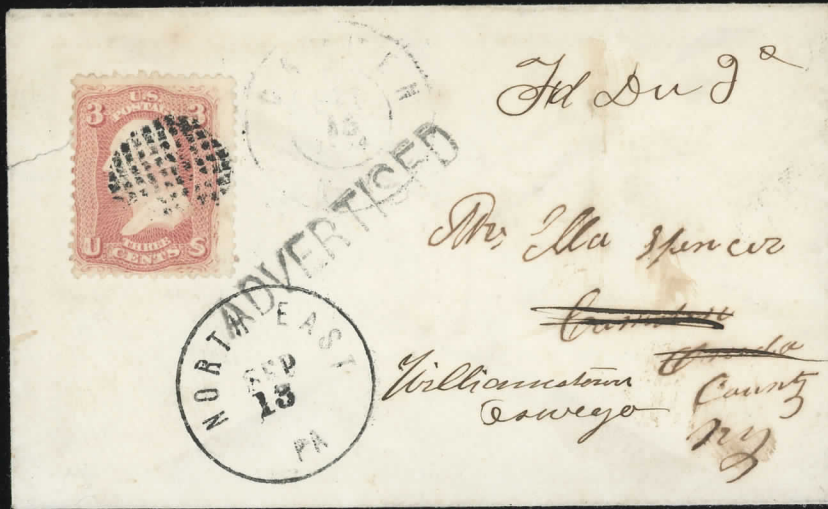 3 U.S. POSTAGE 3
U THREE CENTS S
ADVERTISED
NORTH EAST
SEP
13
PA
Fd Du 9
Mrs Ella Spencer
Williamstown
Oswego
County
NY